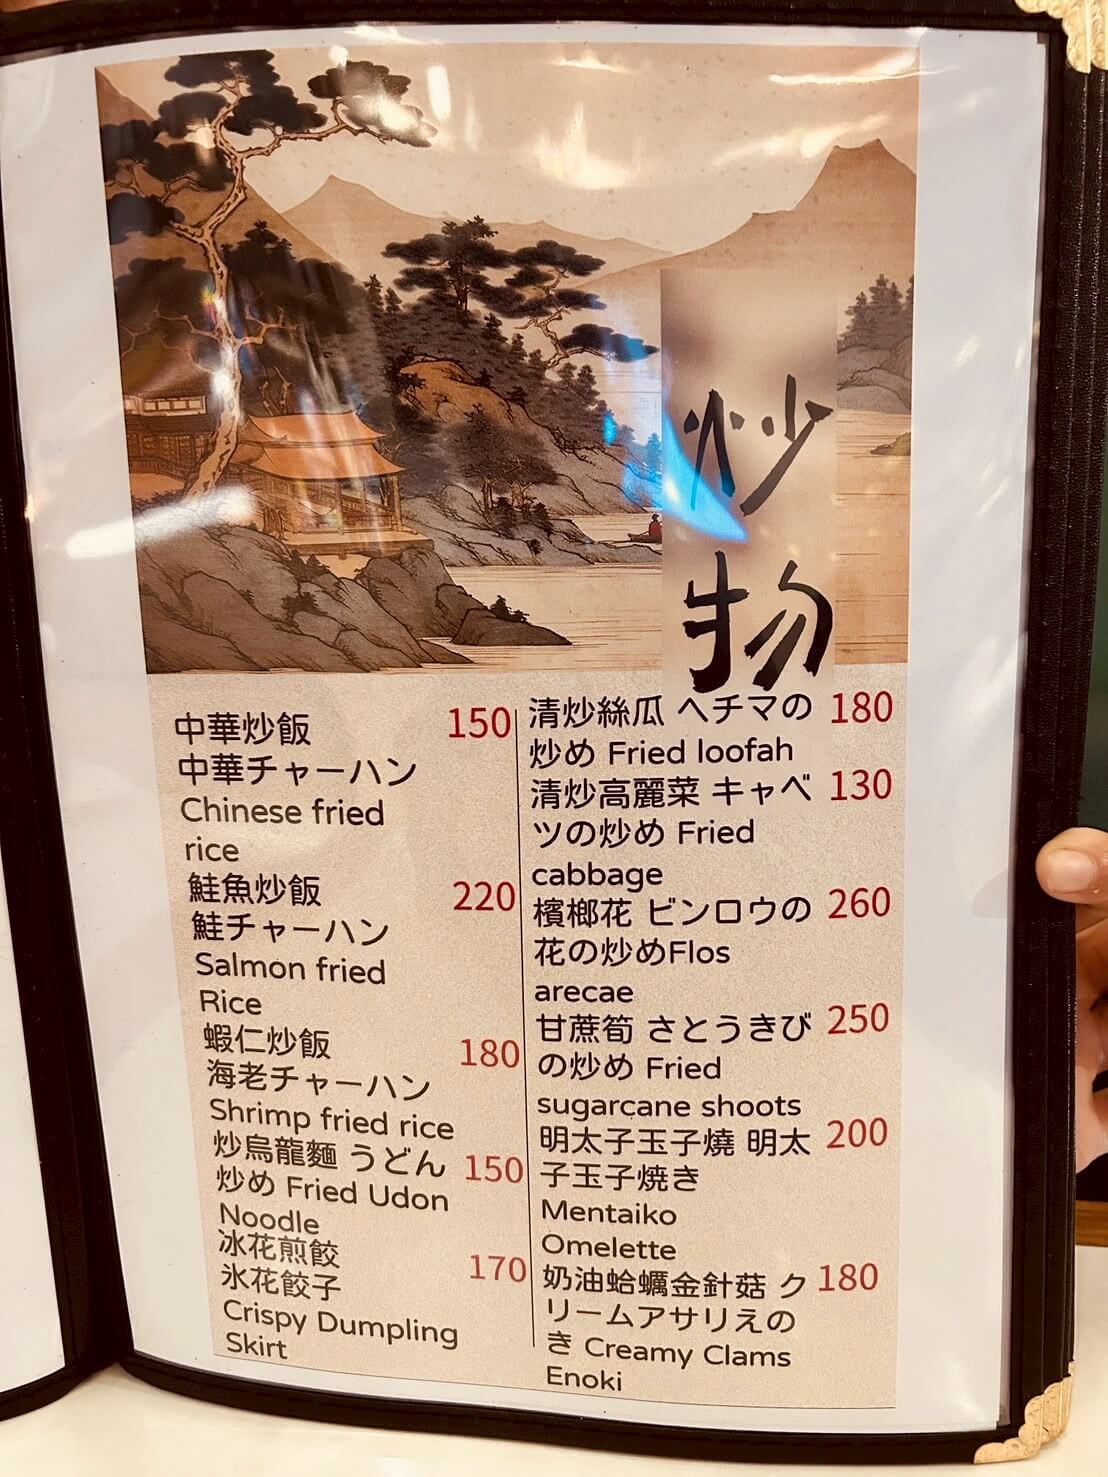 炒物
中華炒飯 150
中華チャーハン
Chinese fried
rice
鮭魚炒飯 220
鮭チャーハン
Salmon fried
Rice
蝦仁炒飯 180
海老チャーハン
Shrimp fried rice
炒烏龍麵 うどん 150
炒め Fried Udon
Noodle
冰花煎餃 170
氷花餃子
Crispy Dumpling
Skirt
清炒絲瓜 ヘチマの 180
炒め Fried loofah
清炒高麗菜 キャベ 130
ツの炒め Fried
cabbage
檳榔花 ビンロウの 260
花の炒めFlos
arecae
甘蔗筍 さとうきび 250
の炒め Fried
sugarcane shoots
明太子玉子燒 明太 200
子玉子焼き
Mentaiko
Omelette
奶油蛤蠣金針菇 ク 180
リームアサリえの
き Creamy Clams
Enoki